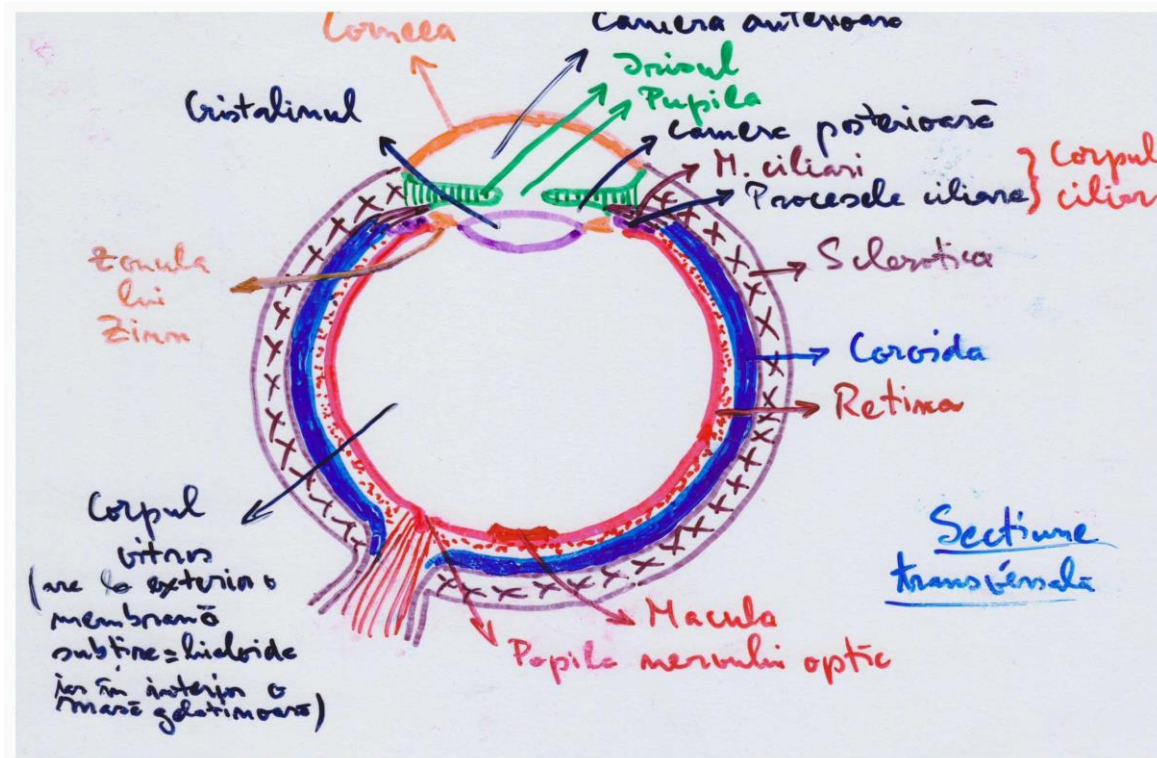 Corneea
Camera anterioară
Irisul
Pupila
Cristalinul
Camera posterioară
M. ciliari
Procesele ciliare
Corpul
ciliar
Zonula
lui
Zinn
Sclerotica
Coroida
Retina
Corpul
vitros
(are la exterior o
membrană
subțire = hialoida
iar în interior o
masă gelatinoasă)
Secțiune
transversală
Macula
Papila nervului optic